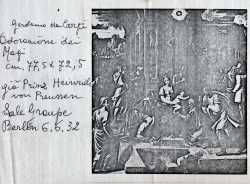 Gerolamo da Carpi
Adorazione dei
Magi
cm 77,5 x 72,5
già Prinz Heinrich
von Preussen
Sale Graupe
Berlin 6.6.32